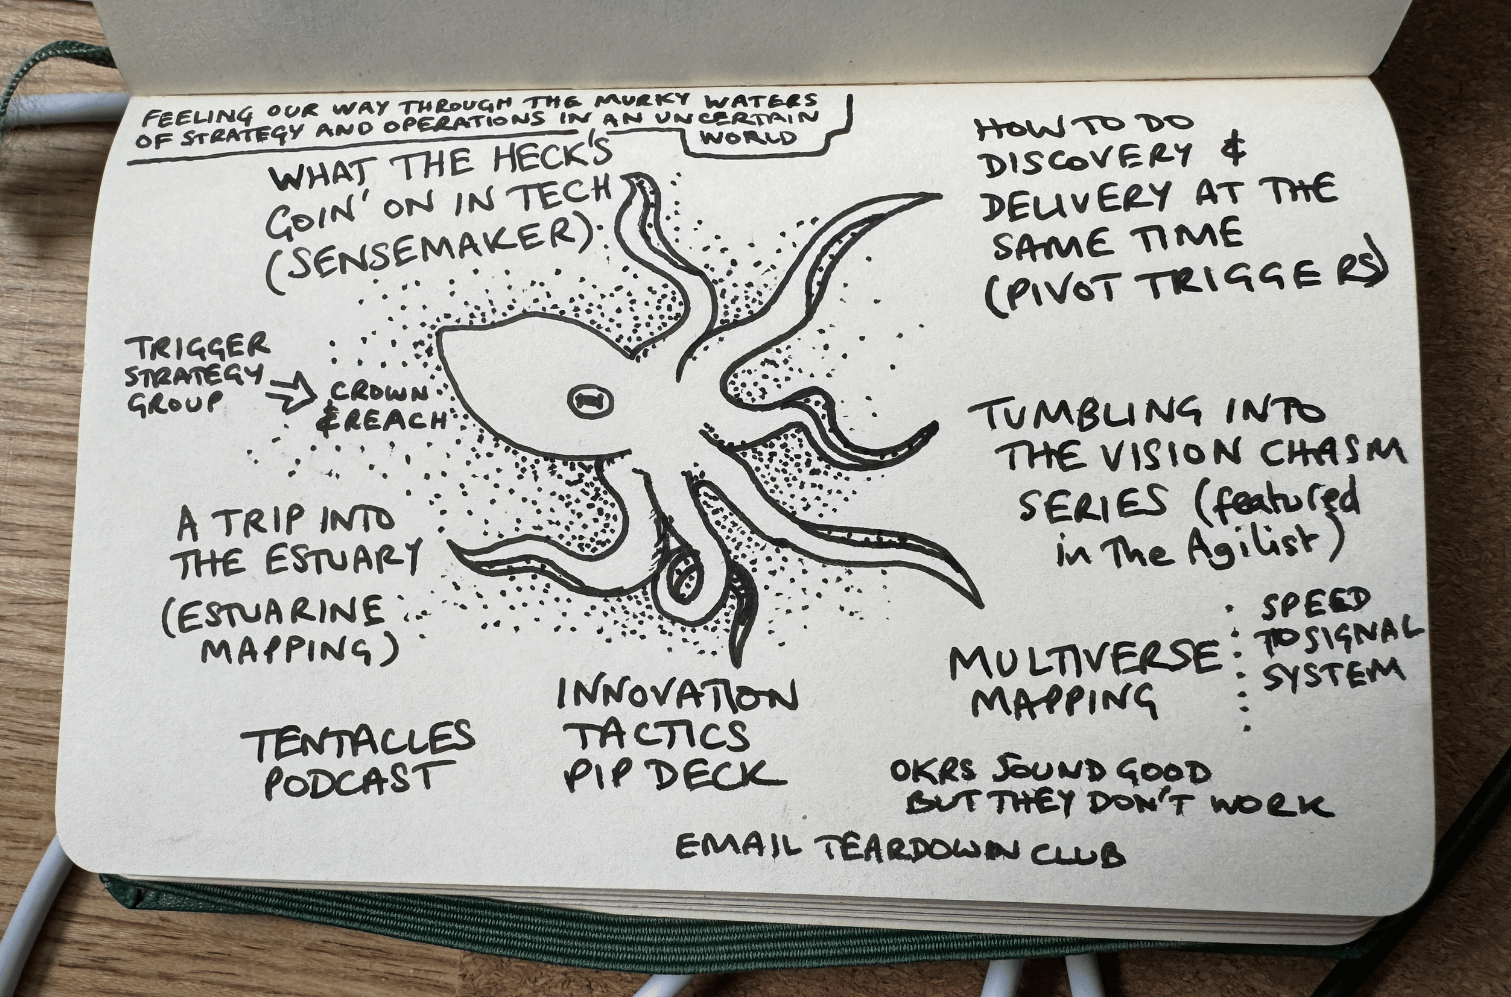 FEELING OUR WAY THROUGH THE MURKY WATERS
OF STRATEGY AND OPERATIONS IN AN UNCERTAIN
WORLD
WHAT THE HECK'S
GOIN' ON IN TECH
(SENSEMAKER)
HOW TO DO
DISCOVERY &
DELIVERY AT THE
SAME TIME
(PIVOT TRIGGERS)
TRIGGER
STRATEGY
GROUP
CROWN
& REACH
TUMBLING INTO
THE VISION CHASM
SERIES (featured
in The Agilist)
A TRIP INTO
THE ESTUARY
(ESTUARINE
MAPPING)
MULTIVERSE
MAPPING
SPEED
TO SIGNAL
SYSTEM
TENTACLES
PODCAST
INNOVATION
TACTICS
PIP DECK
OKRS SOUND GOOD
BUT THEY DON'T WORK
EMAIL TEARDOWN CLUB